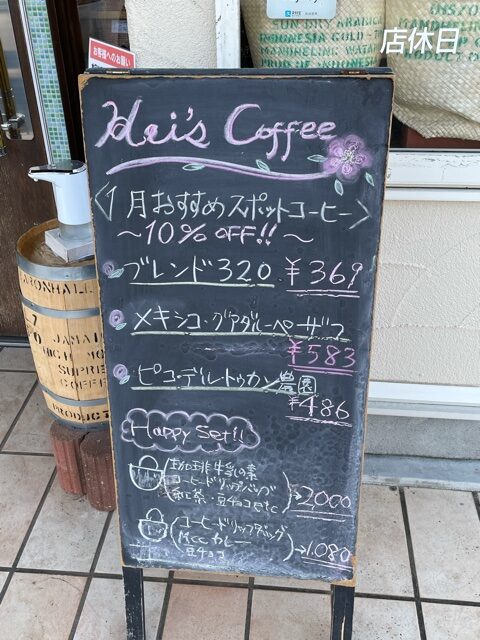 店休日
SUN DRY ARABICA
INDONESIA GOLD-T
MANDHELING WATA
PRODUCT OF INDONESIA
お客様へのお願い
Hei's Coffee
<1月おすすめスポットコーヒー>
～10% OFF!!～
ブレンド320 ¥369
メキシコ・グアダルーペ・ザコ
¥583
ピコ・デル・トゥカン農園
¥486
Happy Set!!
珈琲牛乳の素
コーヒードリップバッグ
紅茶・豆チョコ etc
→2,000
コーヒードリップバッグ
MCCカレー
豆チョコ
→1,080
JAMAI
HIGH MO
SUPRE
COFFE
PRODUCT